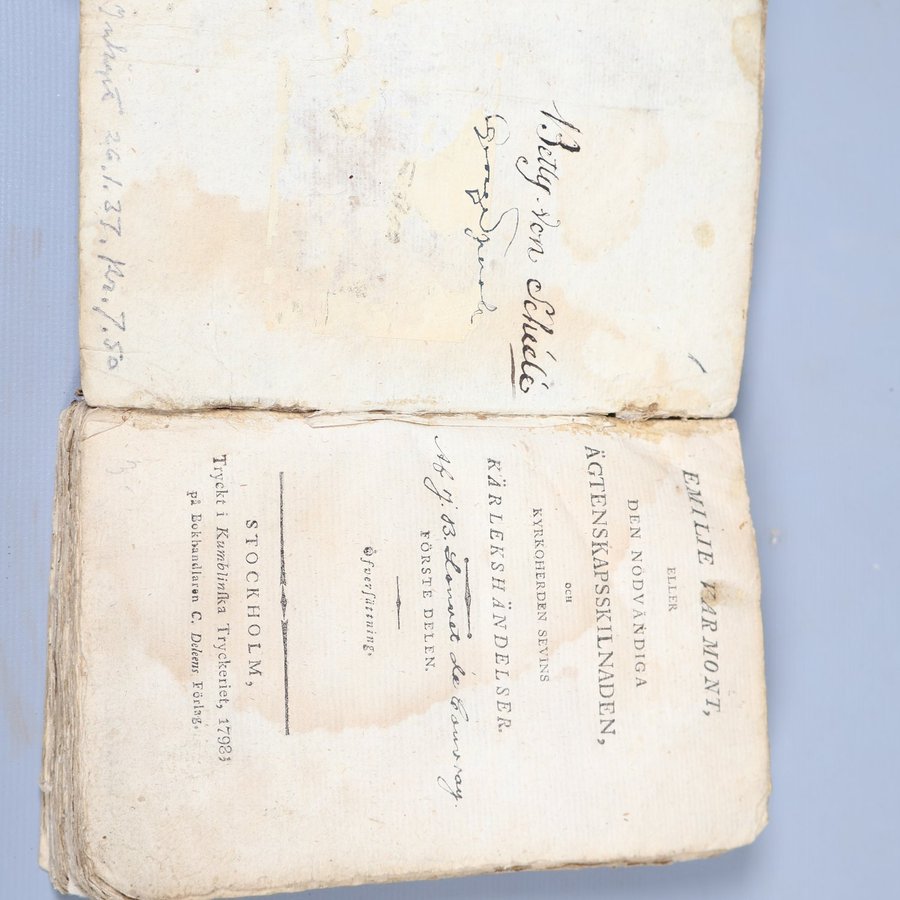 Betty von Scheele
George
Inköpt 26.1.37. Kr. 7.50
EMILIE VARMONT,
ELLER
DEN NÖDVÄNDIGA
ÄGTENSKAPSSKILNADEN,
OCH
KYRKOHERDEN SEVINS
KÄRLEKSHÄNDELSER.
Af J. B. Louvet de Couvray.
FÖRSTE DELEN.
Öfversättning.
STOCKHOLM,
Tryckt i Kumblinska Tryckeriet, 1798;
på Bokhandlaren C. Deleens Förlag.